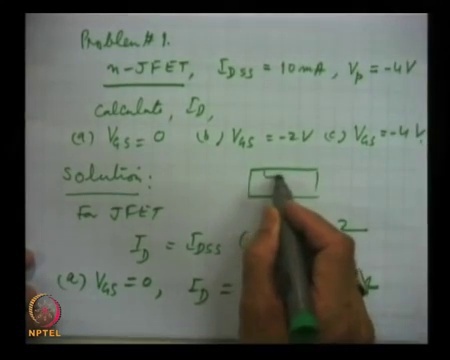 Problem # 1.
n-JFET, I_DSS = 10mA, V_p = -4V
Calculate, I_D,
(a) V_GS = 0 (b), V_GS = -2V (c) V_GS = -4V.
Solution:
For JFET
I_D = I_DSS ( 2
(a) V_GS = 0, I_D =
NPTEL